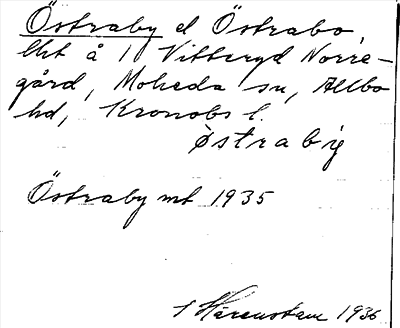 Östraby el Östrabo,
lht å 1 Vitteryd Norre-
gård, Moheda sn, Allbo
hd, Kronobs l.
østrabiy
Östraby mt 1935
Härenstam 1936